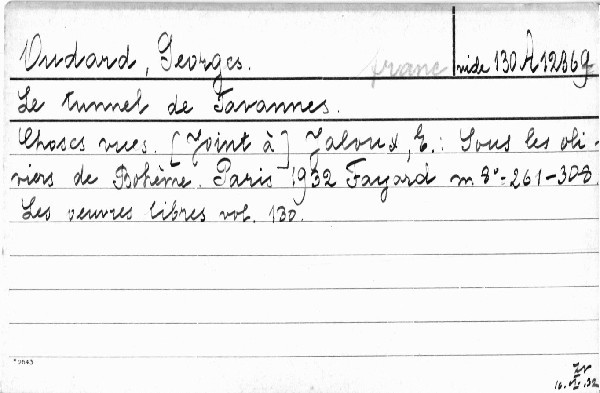 Oudard, Georges. franc vide 130 A 12869
Le tunnel de Tavannes.
Choses vues. [Joint à] Jaloux, E.: Sous les oli-
viers de Bohème. Paris 1932 Fayard m 8°. 261-308.
Les oeuvres libres vol. 130.
*2643
16. 32